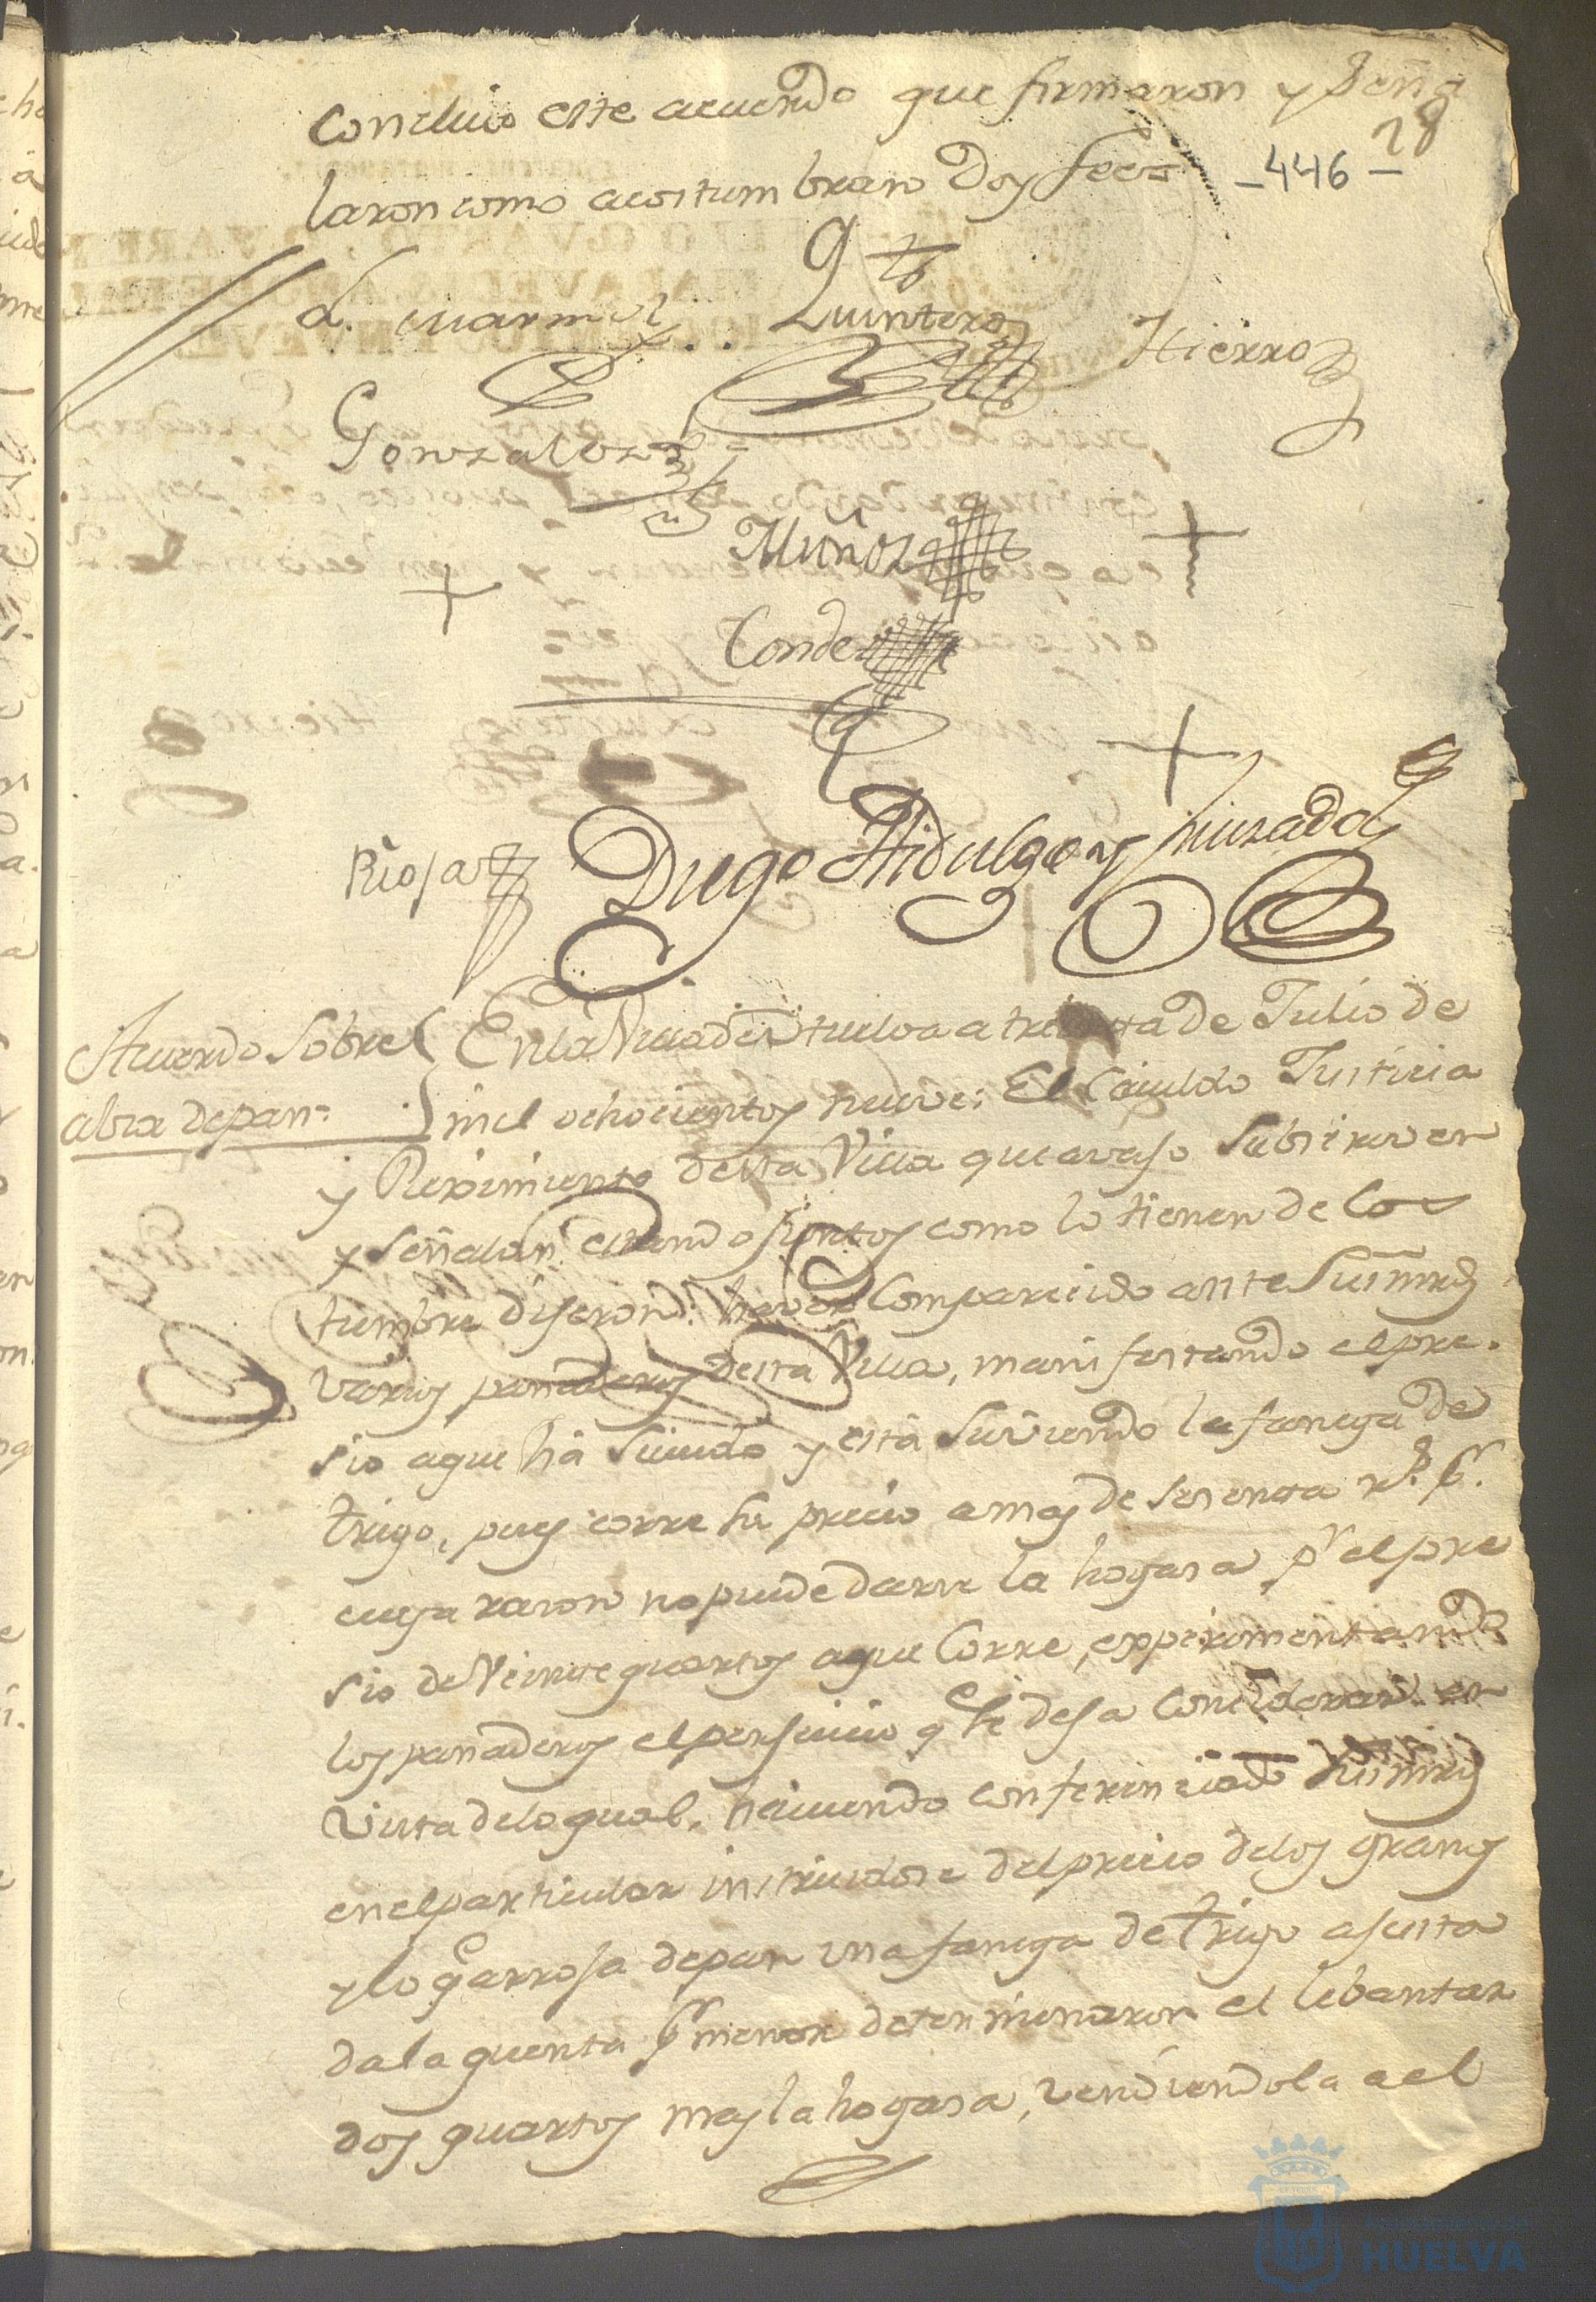 28
concluio este acuerdo que firmaron y Seña
laron como acostumbran Doy fee=
-446-
Marmol Quintero Hierro
Gonzalez
Muñoz
Conde
Rioja Diego Hidalgo y Jurado
Acuerdo Sobre
alza de pan=
En la Villa de Huelva a treinta de Julio de
mil ochocientos nueve: El Cavildo Justicia
y Reximiento desta Villa que avajo Subscriven
y Señalan estando juntos como lo tienen de Cos
tumbre dijeron: haver Comparecido ante Sus mrds
varios panaderos desta Villa, manifestando el pre.
sio a que há Suvido y está Suviendo la fanega de
trigo, pues corre Su precio a mas de sesenta rs. pr.
cuya razon no puede darse la hogasa pr el pre
sio de Veinte quartos a que Corre, experimentando
los panaderos el perjuicio q Se deja Considerar: en
vista de lo qual, haviendo conferenciado Sus mrds
en el particular instruidose del precio de los granos
y lo q arroja de pan una fanega de trigo ajusta
da la quenta pr menor determinaron el lebantar
dos quartos mas la hogasa, vendiendola a el
HUELVA